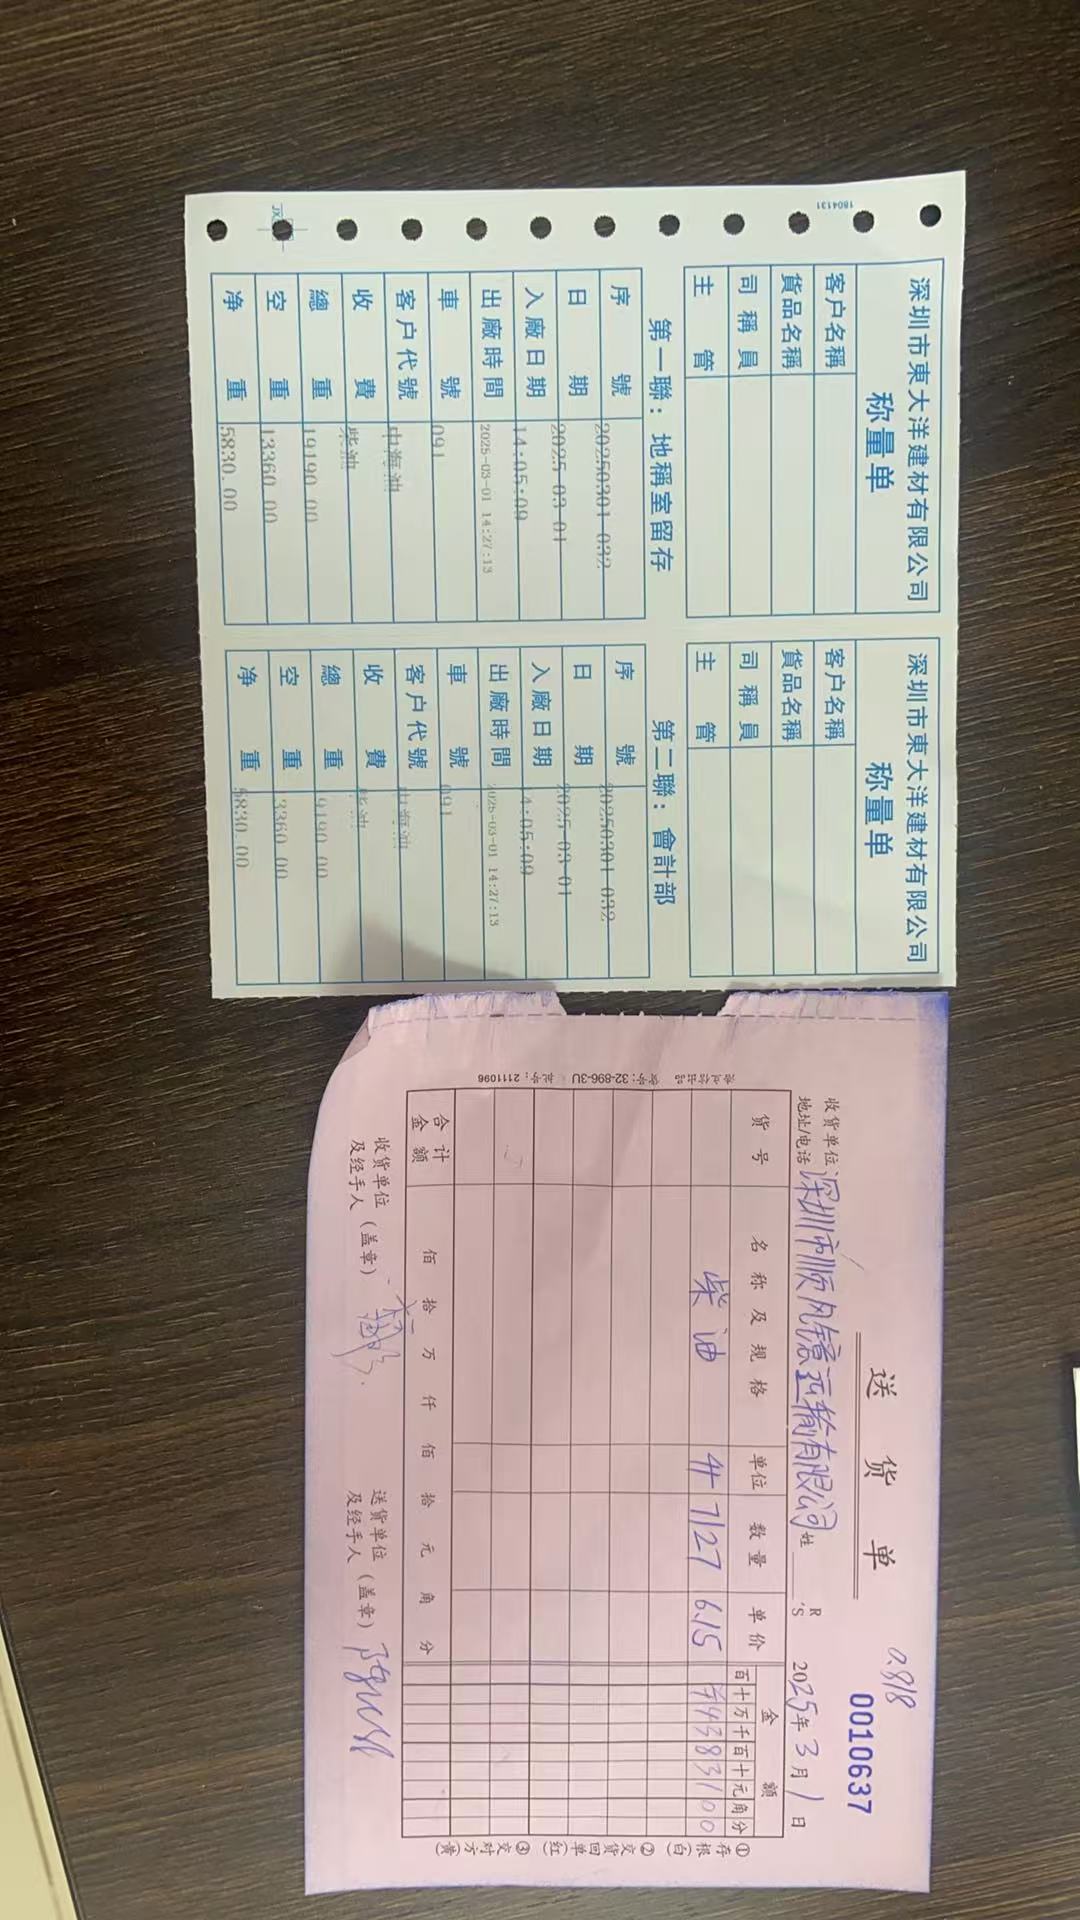 1804131
JX
深圳市東大洋建材有限公司
称量单
客户名稱
貨品名稱
司稱員
主管
第一聯：地稱室留存
序號 20250301-032
日期 2025-03-01
入廠日期 14:05:09
出廠時間 2025-03-01 14:27:13
車號 091
客户代號 中海油
收費 柴油
總重 19190.00
空重 13360.00
净重 5830.00
深圳市東大洋建材有限公司
称量单
客户名稱
貨品名稱
司稱員
主管
第二聯：會計部
序號 20250301-032
日期 2025-03-01
入廠日期 4:05:09
出廠時間 2025-03-01 14:27:13
車號 091
客户代號 中海油
收費 柴油
總重 9190.00
空重 3360.00
净重 5830.00
0.818
送货单 0010637
收货单位
地址/电话 深圳市顺风 运输有限公司 姓 R S 2025年3月1日
货号 名称及规格 单位 数量 单价 金额
百十万千百十元角分
柴油 升 7127 6.15 ¥4383100
合计金额 佰拾万仟佰拾元角分
收货单位及经手人（盖章）
送货单位及经手人（盖章）
①存根(白) ②交货回单(红) ③交对方(黄)
货号：32-896-3U 批号：2111096